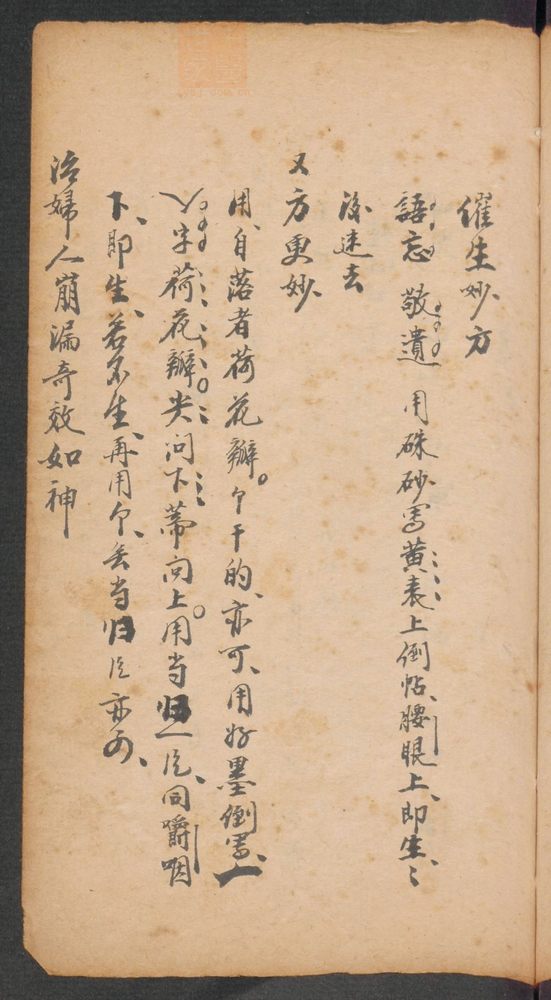 催生妙方
語忘 敬遺 用硃砂寫黄表上倒帖、腰眼上、即生、〻
後速去
又方更妙、
用、自落者荷花瓣。个干的、亦可、用好墨倒寫、一
丫字荷花瓣。尖向下、蒂向上。用当归一片、同嚼咽
下、即生、若不生、再用个、去当归片亦可、
治婦人崩漏奇效如神